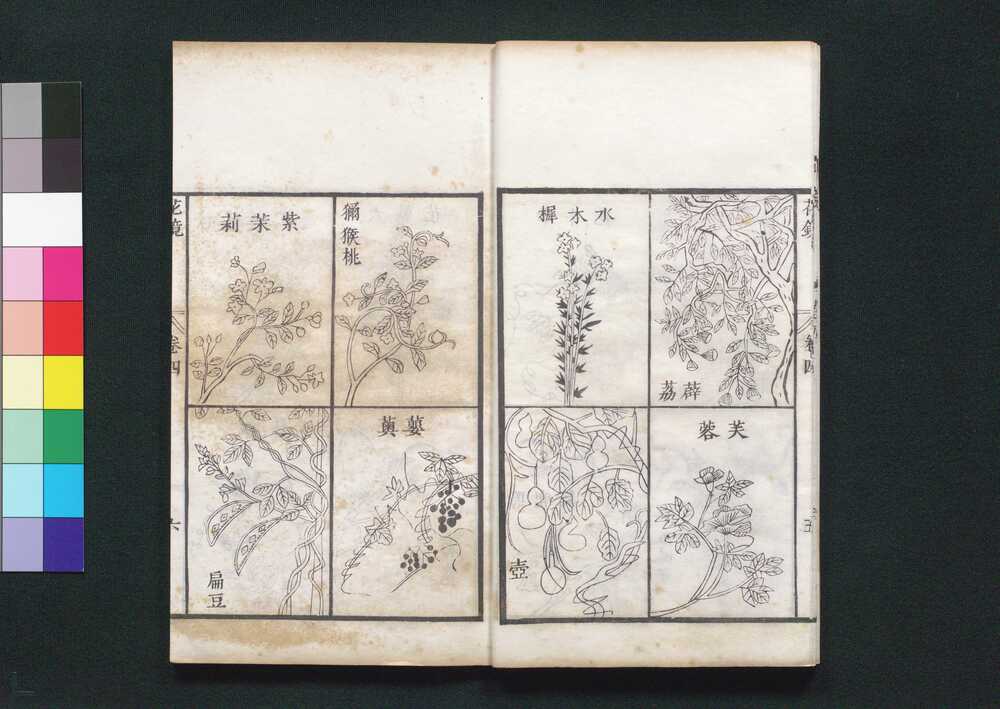 花鏡
卷四
五
薜荔
芙蓉
水木樨
壺
獼猴桃
蘡薁
紫茉莉
扁豆
花鏡
卷四
六